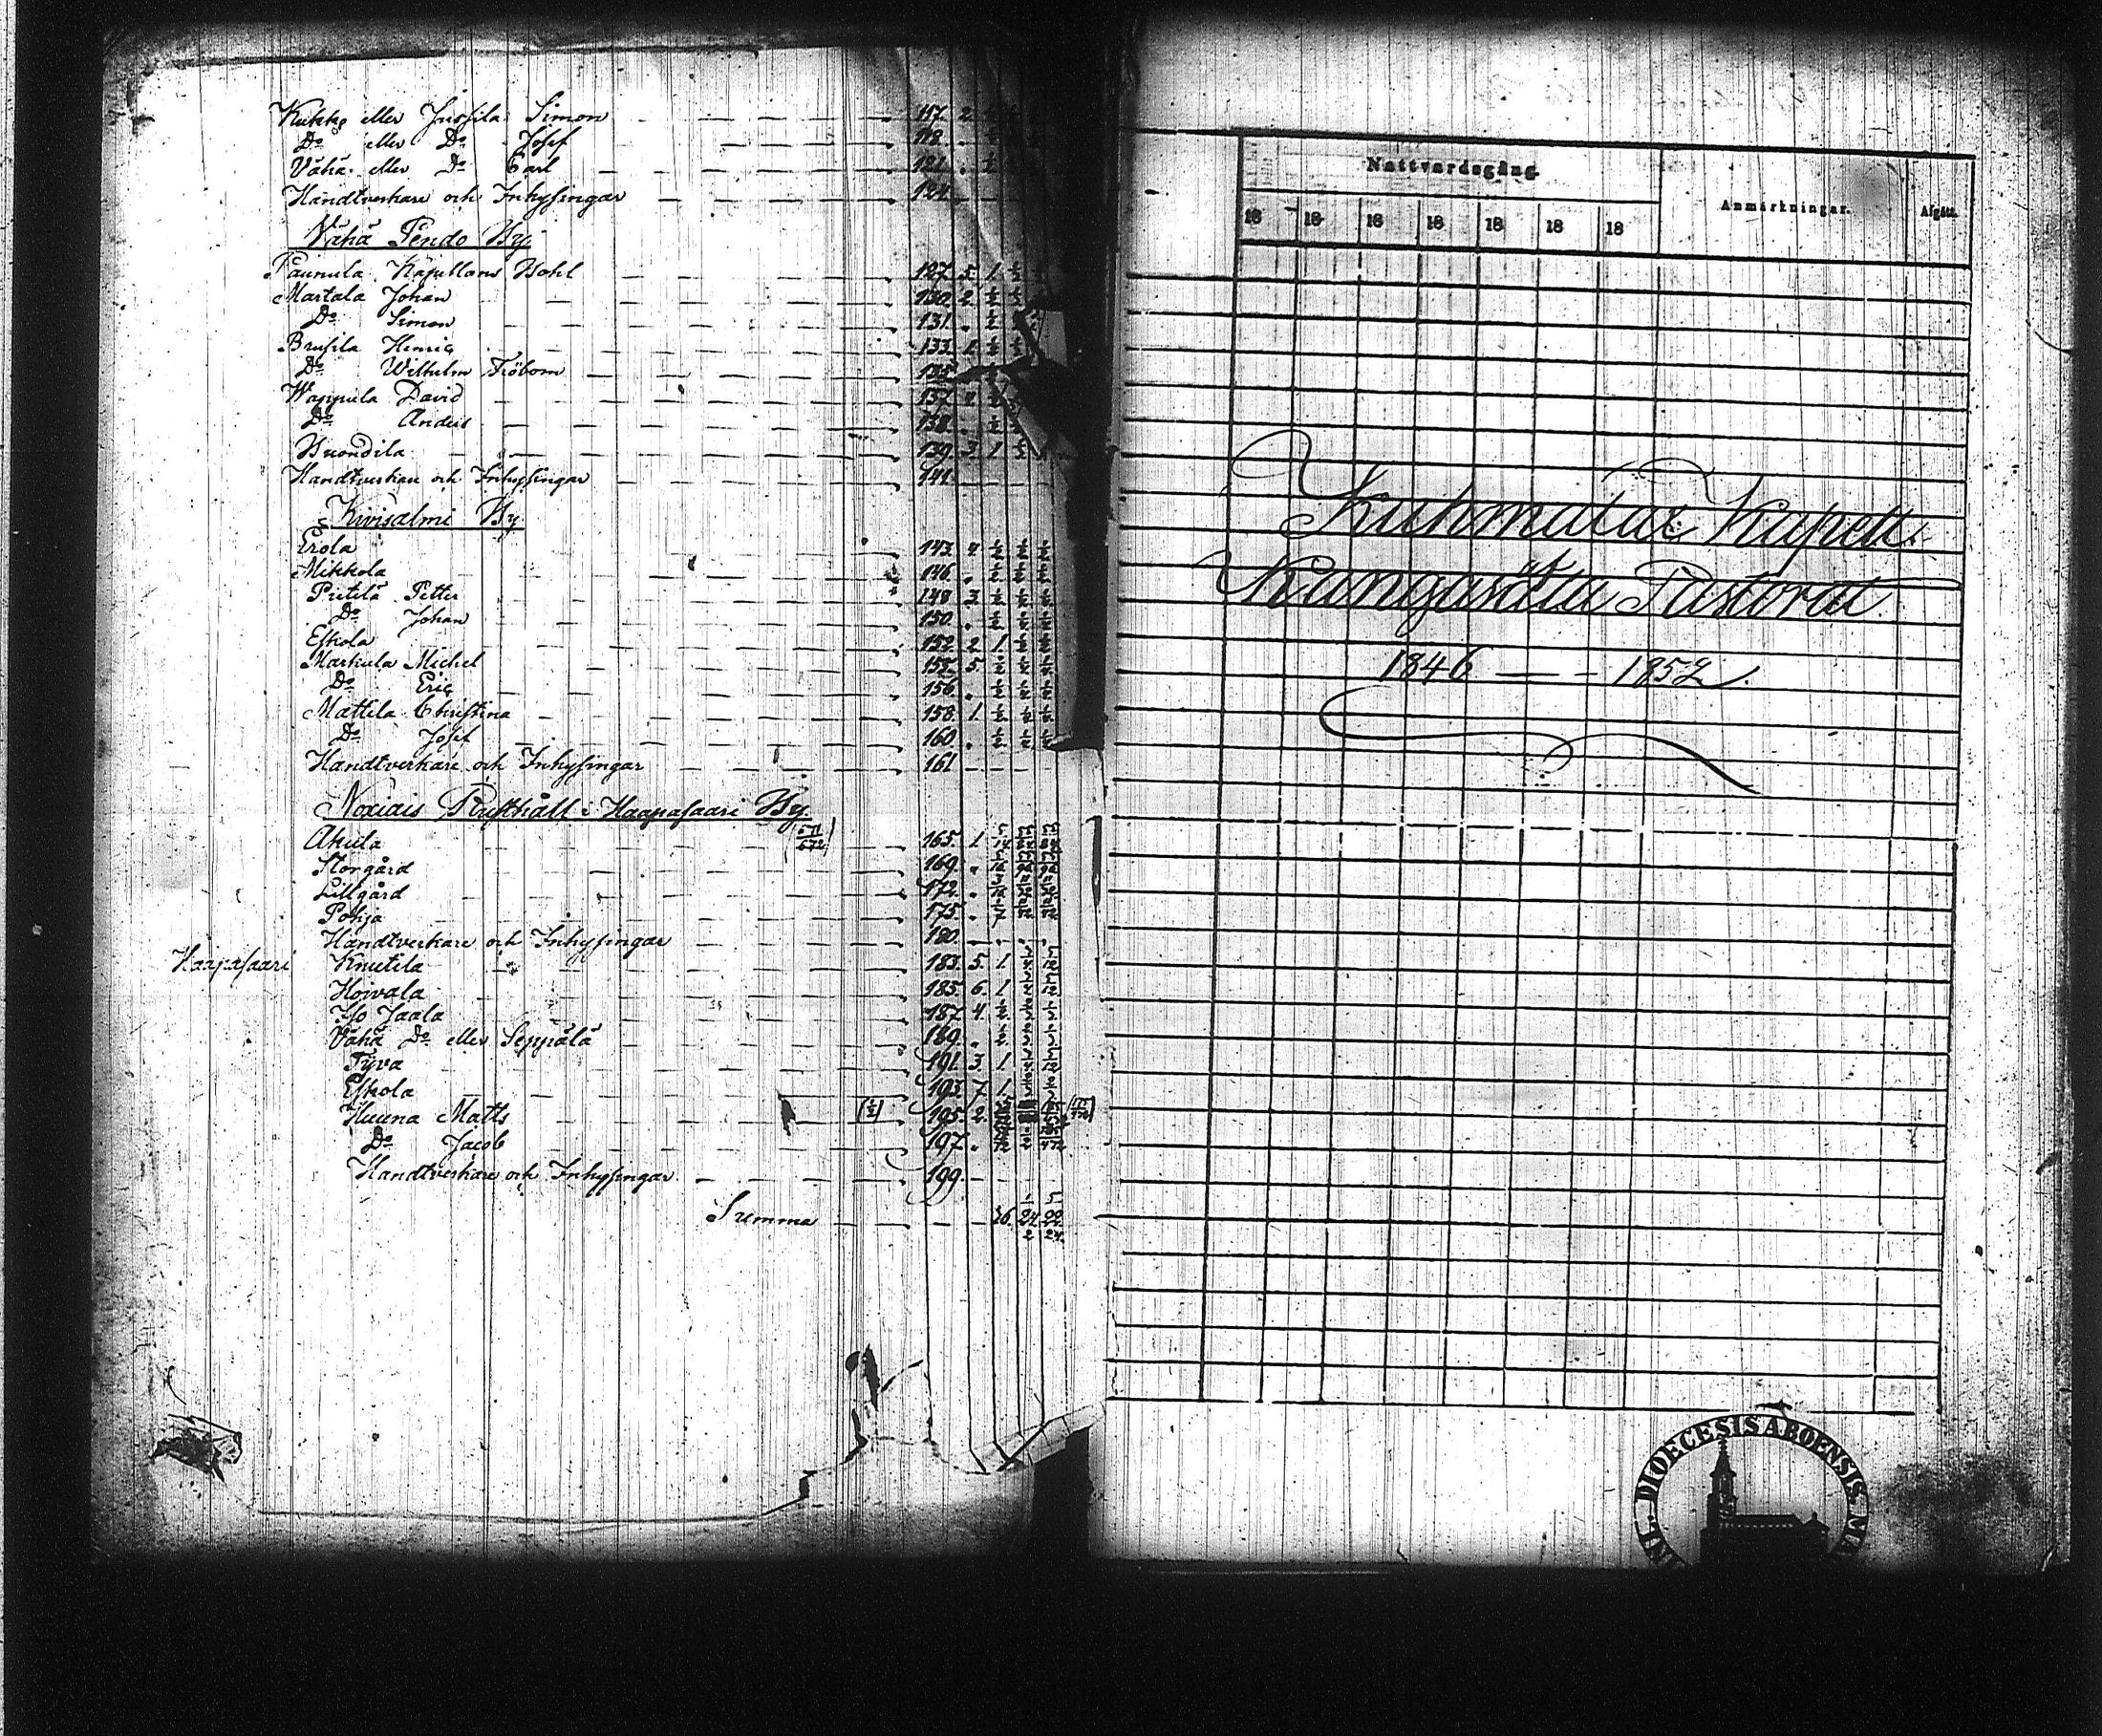 Kukko eller Jussila Simon 117. 2
Do eller Do Josef 119.
Vähä eller Do Carl 121.
Handtverkare och Inhysingar 124.
Vähä Pendo By
Paunula Kapellans Bohl 127. 5. 1. ½
Martala Johan 130. 2. ½
Do Simon 131. ½
Brusila Henric 133. 1. ½
Do Wilhelm Fröbom 135.
Wappula David 137. 4.
Do Anders 138. ½
Brondila 139. 3. 1
Handtverkare och Inhysingar 141.
Kivisalmi By
Erola 143. 4. ½ ½ ½
Mikkola 146. ½ ½ ½
Prittilä Petter 148. 3. ½ ½ ½
Do Johan 150. ½ ½ ½
Eskola 152. 2. 1. ½ ½
Markula Michel 155. 5. ½ ½ ½
Do Eric 156. ½ ½ ½
Mattila Christina 158. 1. ½ ½ ½
Do Josef 160. ½ ½ ½
Handtverkare och Inhysingar 161
Rusthåll i Haapasaari By
Akula 165. 1.
Storgård 169.
Lillgård 172.
Pohja 175.
Handtverkare och Inhysingar 180.
Haapasaari Knutila 183. 5. 1.
Hoivala 185. 6. 1
Iso Jaala 187. 4. ½
Vähä Do eller Seppälä 189. ½
Tyva 191. 3. 1.
Eskola 193. 7. 1.
Huuna Matts (½) 195. 2.
Do Jacob 197.
Handtverkare och Inhysingar 199
Summa
Nattvardsgång.
Anmärkningar.
Afgått.
18 18 18 18 18 18 18
Kuhmalax Kapell
Kangasala Pastorat
1846 — — 1852.
DIOECESIS ABOENSIS